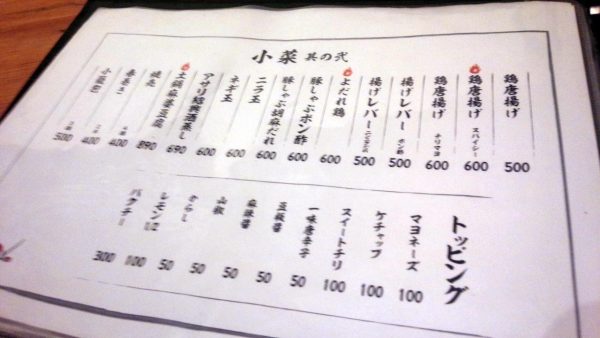 小菜 其の弐
鶏唐揚げ 500
鶏唐揚げ スパイシー 600
鶏唐揚げ チリマヨ 600
揚げレバー ポン酢 500
揚げレバー 500
よだれ鶏 600
豚しゃぶポン酢 600
豚しゃぶ胡麻だれ 600
ニラ玉 600
ネギ玉 600
アサリ紹興酒蒸し 600
土鍋麻婆豆腐 690
焼売 890
春巻き 400
小籠包 500
トッピング
マヨネーズ 100
ケチャップ 100
スイートチリ 100
一味唐辛子 50
豆板醤 50
麻辣醤 50
山椒 50
からし 50
レモン1/2 100
パクチー 300